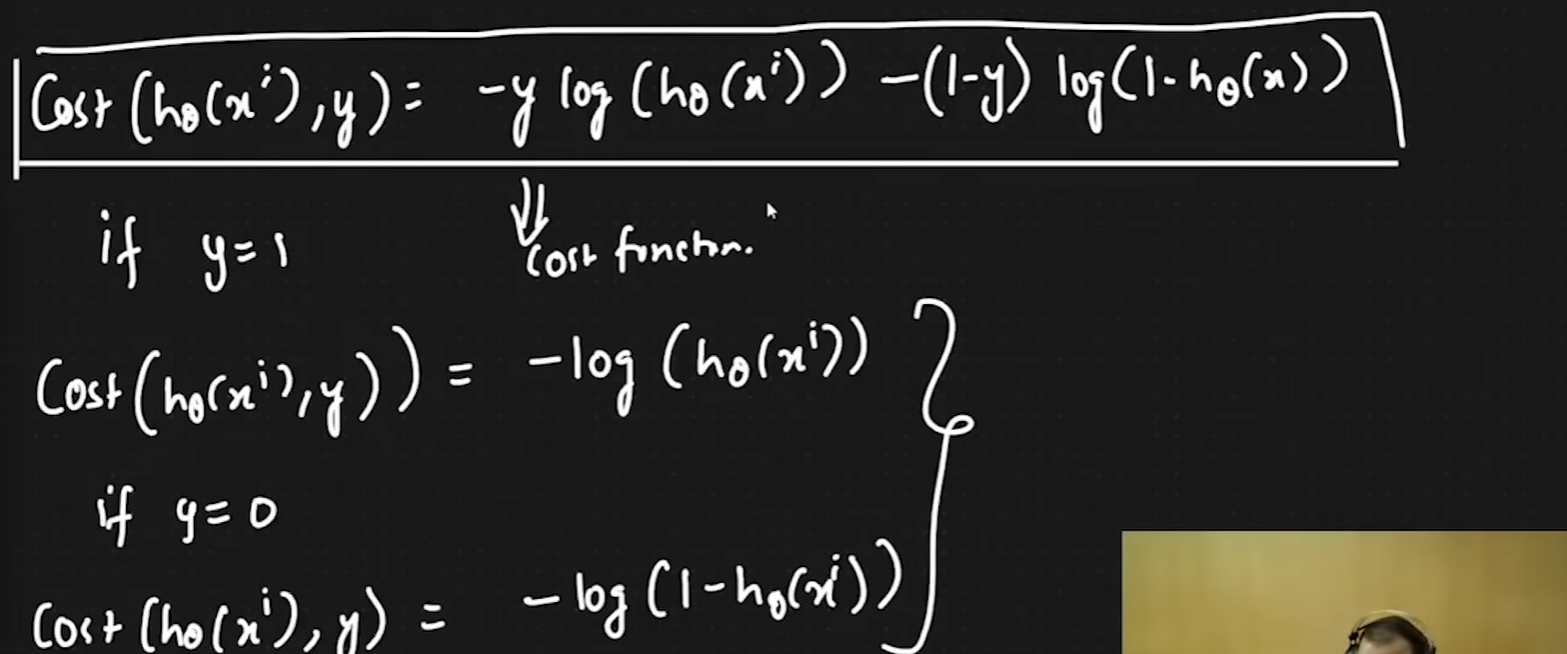 Cost (hθ(xⁱ), y) = -y log (hθ(xⁱ)) -(1-y) log(1-hθ(x))
if y=1
⇓
Cost functn.
Cost(hθ(xⁱ), y)) = -log (hθ(xⁱ))
if y=0
Cost (hθ(xⁱ), y) = -log (1-hθ(xⁱ))